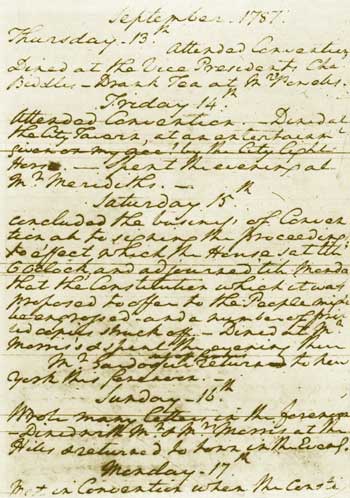 September. 1787.
Thursday. 13th
Attended Convention
Dined at the Vice Presidents Chas
Biddles — Drank Tea at Mrs Powells.
Friday 14th
Attended Convention. — Dined at
the City Tavern, at an entertainmt
given on my acct by the City light
Horse. — Spent the evening at
Mr Merediths. —
Saturday 15th
concluded the business of Conven
tion all to signing the proceedings
to effect which the House sat till
6 Oclock; and adjourned till Monday
that the Constitution which it was
proposed to offer to the People might
be engrossed — and a number of prin
ted copies struck off. — Dined at Mr
Morris's & spent the evening there
Mr returned to New
York this forenoon. —
Sunday. 16th
Wrote many letters in the forenoon
Dined with Mr & Mrs Morris at the
Hills & returned to town in the Eveng.
Monday. 17th
Met in Convention when the Consti